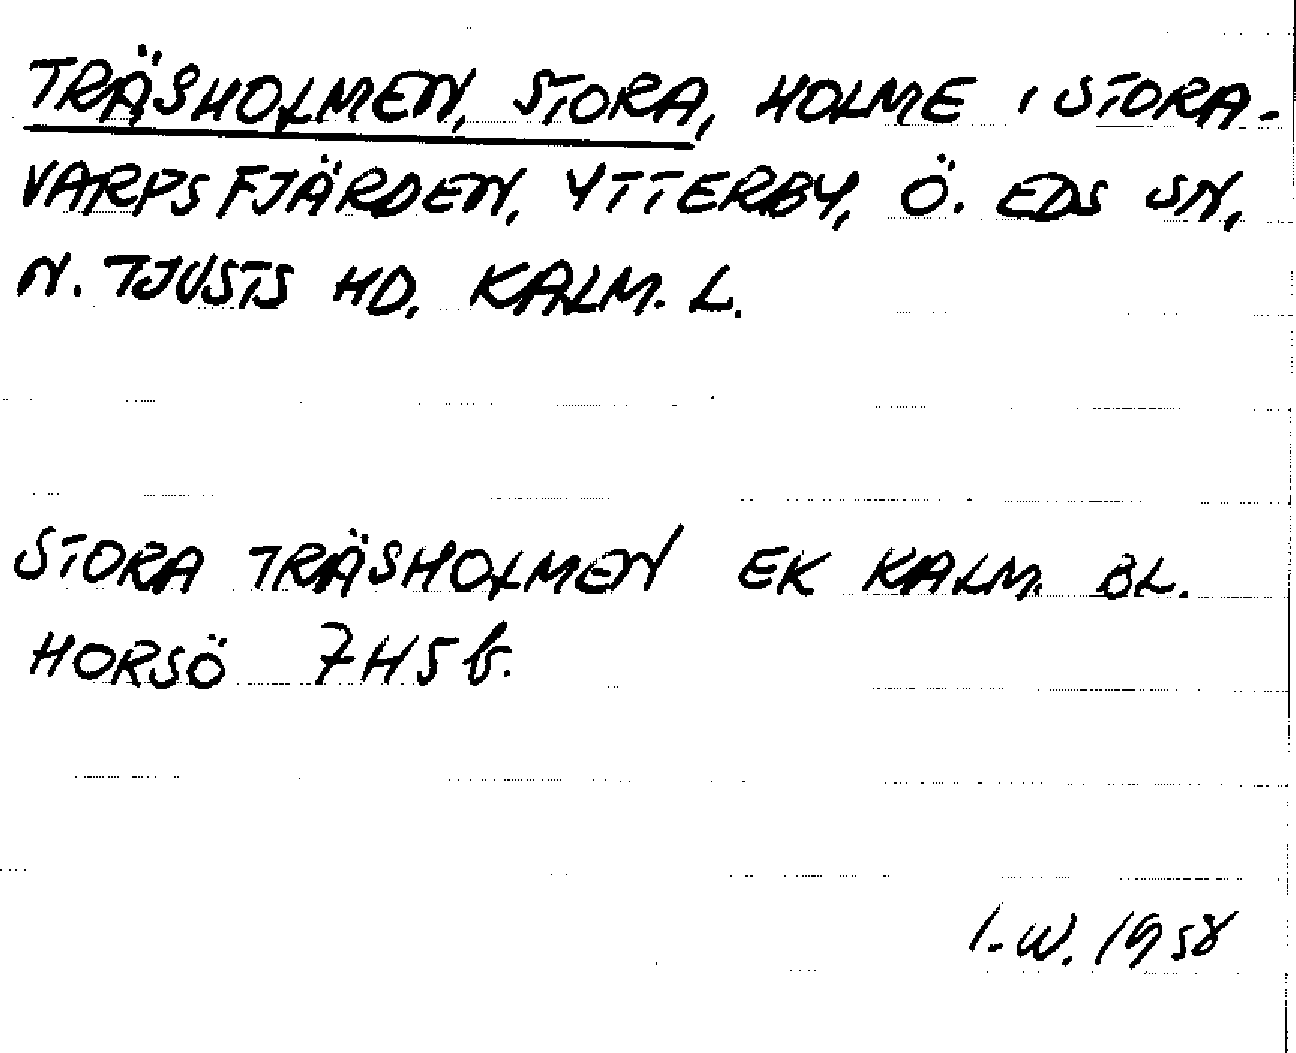 TRÄSHOLMEN, STORA, HOLME I STORA-
VARPSFJÄRDEN, YTTERBY, Ö. EDS SN,
N. TJUSTS HD. KALM. L.
STORA TRÄSHOLMEN EK KALM. BL.
HORSÖ 7H5b.
I.W. 1958